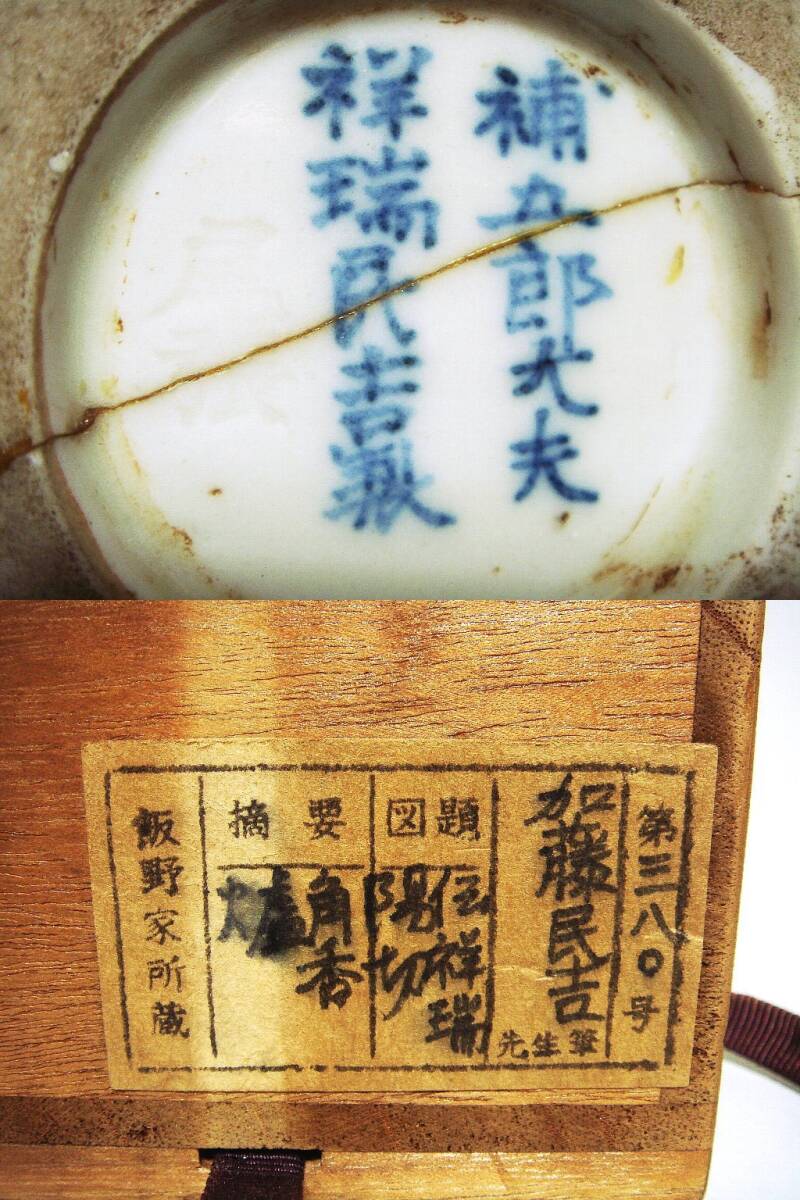 補五郎大夫
祥瑞民吉製
第三八〇号
加藤民吉
先生筆
図題
伝祥瑞
陽切
摘要
角香
炉
飯野家所蔵